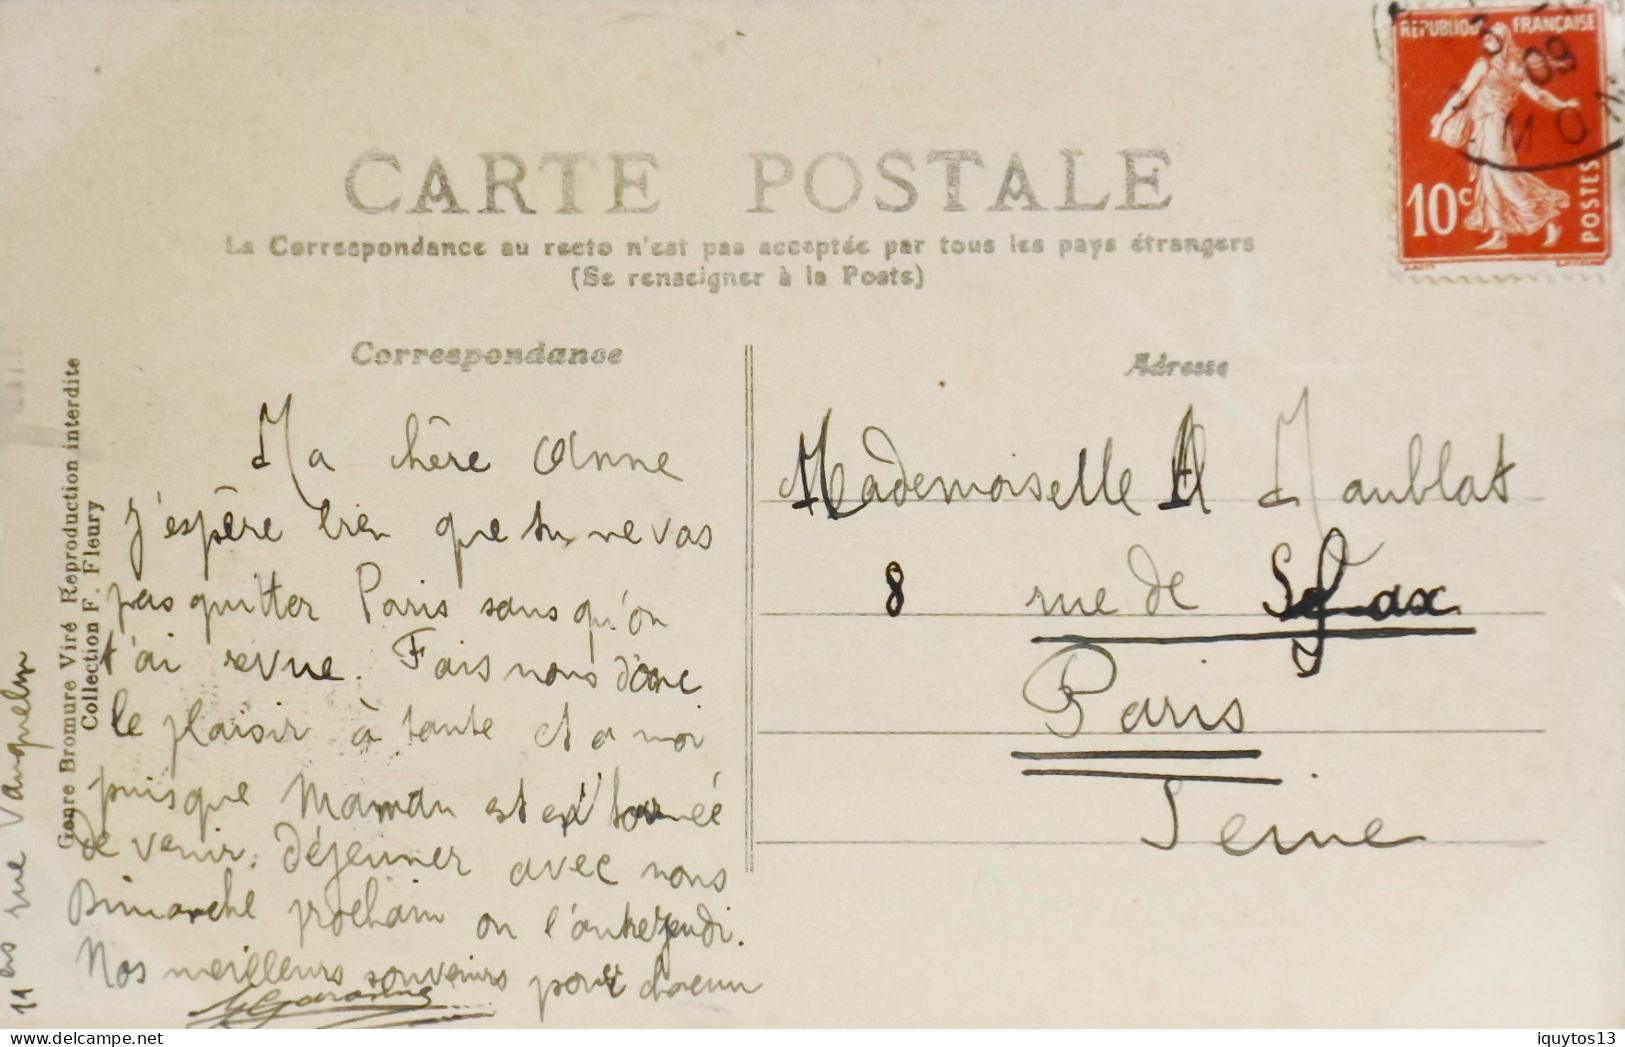 CARTE POSTALE
La Correspondance au recto n'est pas acceptée par tous les pays étrangers
(Se renseigner à la Poste)
RÉPUBLIQUE FRANÇAISE
10c
POSTES
09
Correspondance
Ma chère Anne
J'espère bien que tu ne vas
pas quitter Paris sans qu'on
t'ai revue. Fais nous donc
le plaisir à tante et a moi
puisque Maman est
de venir. Déjeuner avec nous
Dimanche prochain ou l'autre jeudi.
Nos meilleurs souvenirs pour chacun
11 bis rue Vauquelin
Genre Bromure Viré Reproduction interdite
Collection F. Fleury
Adresse
Mademoiselle A Maublat
8 rue de Sfax
Paris
Seine
iquytos13